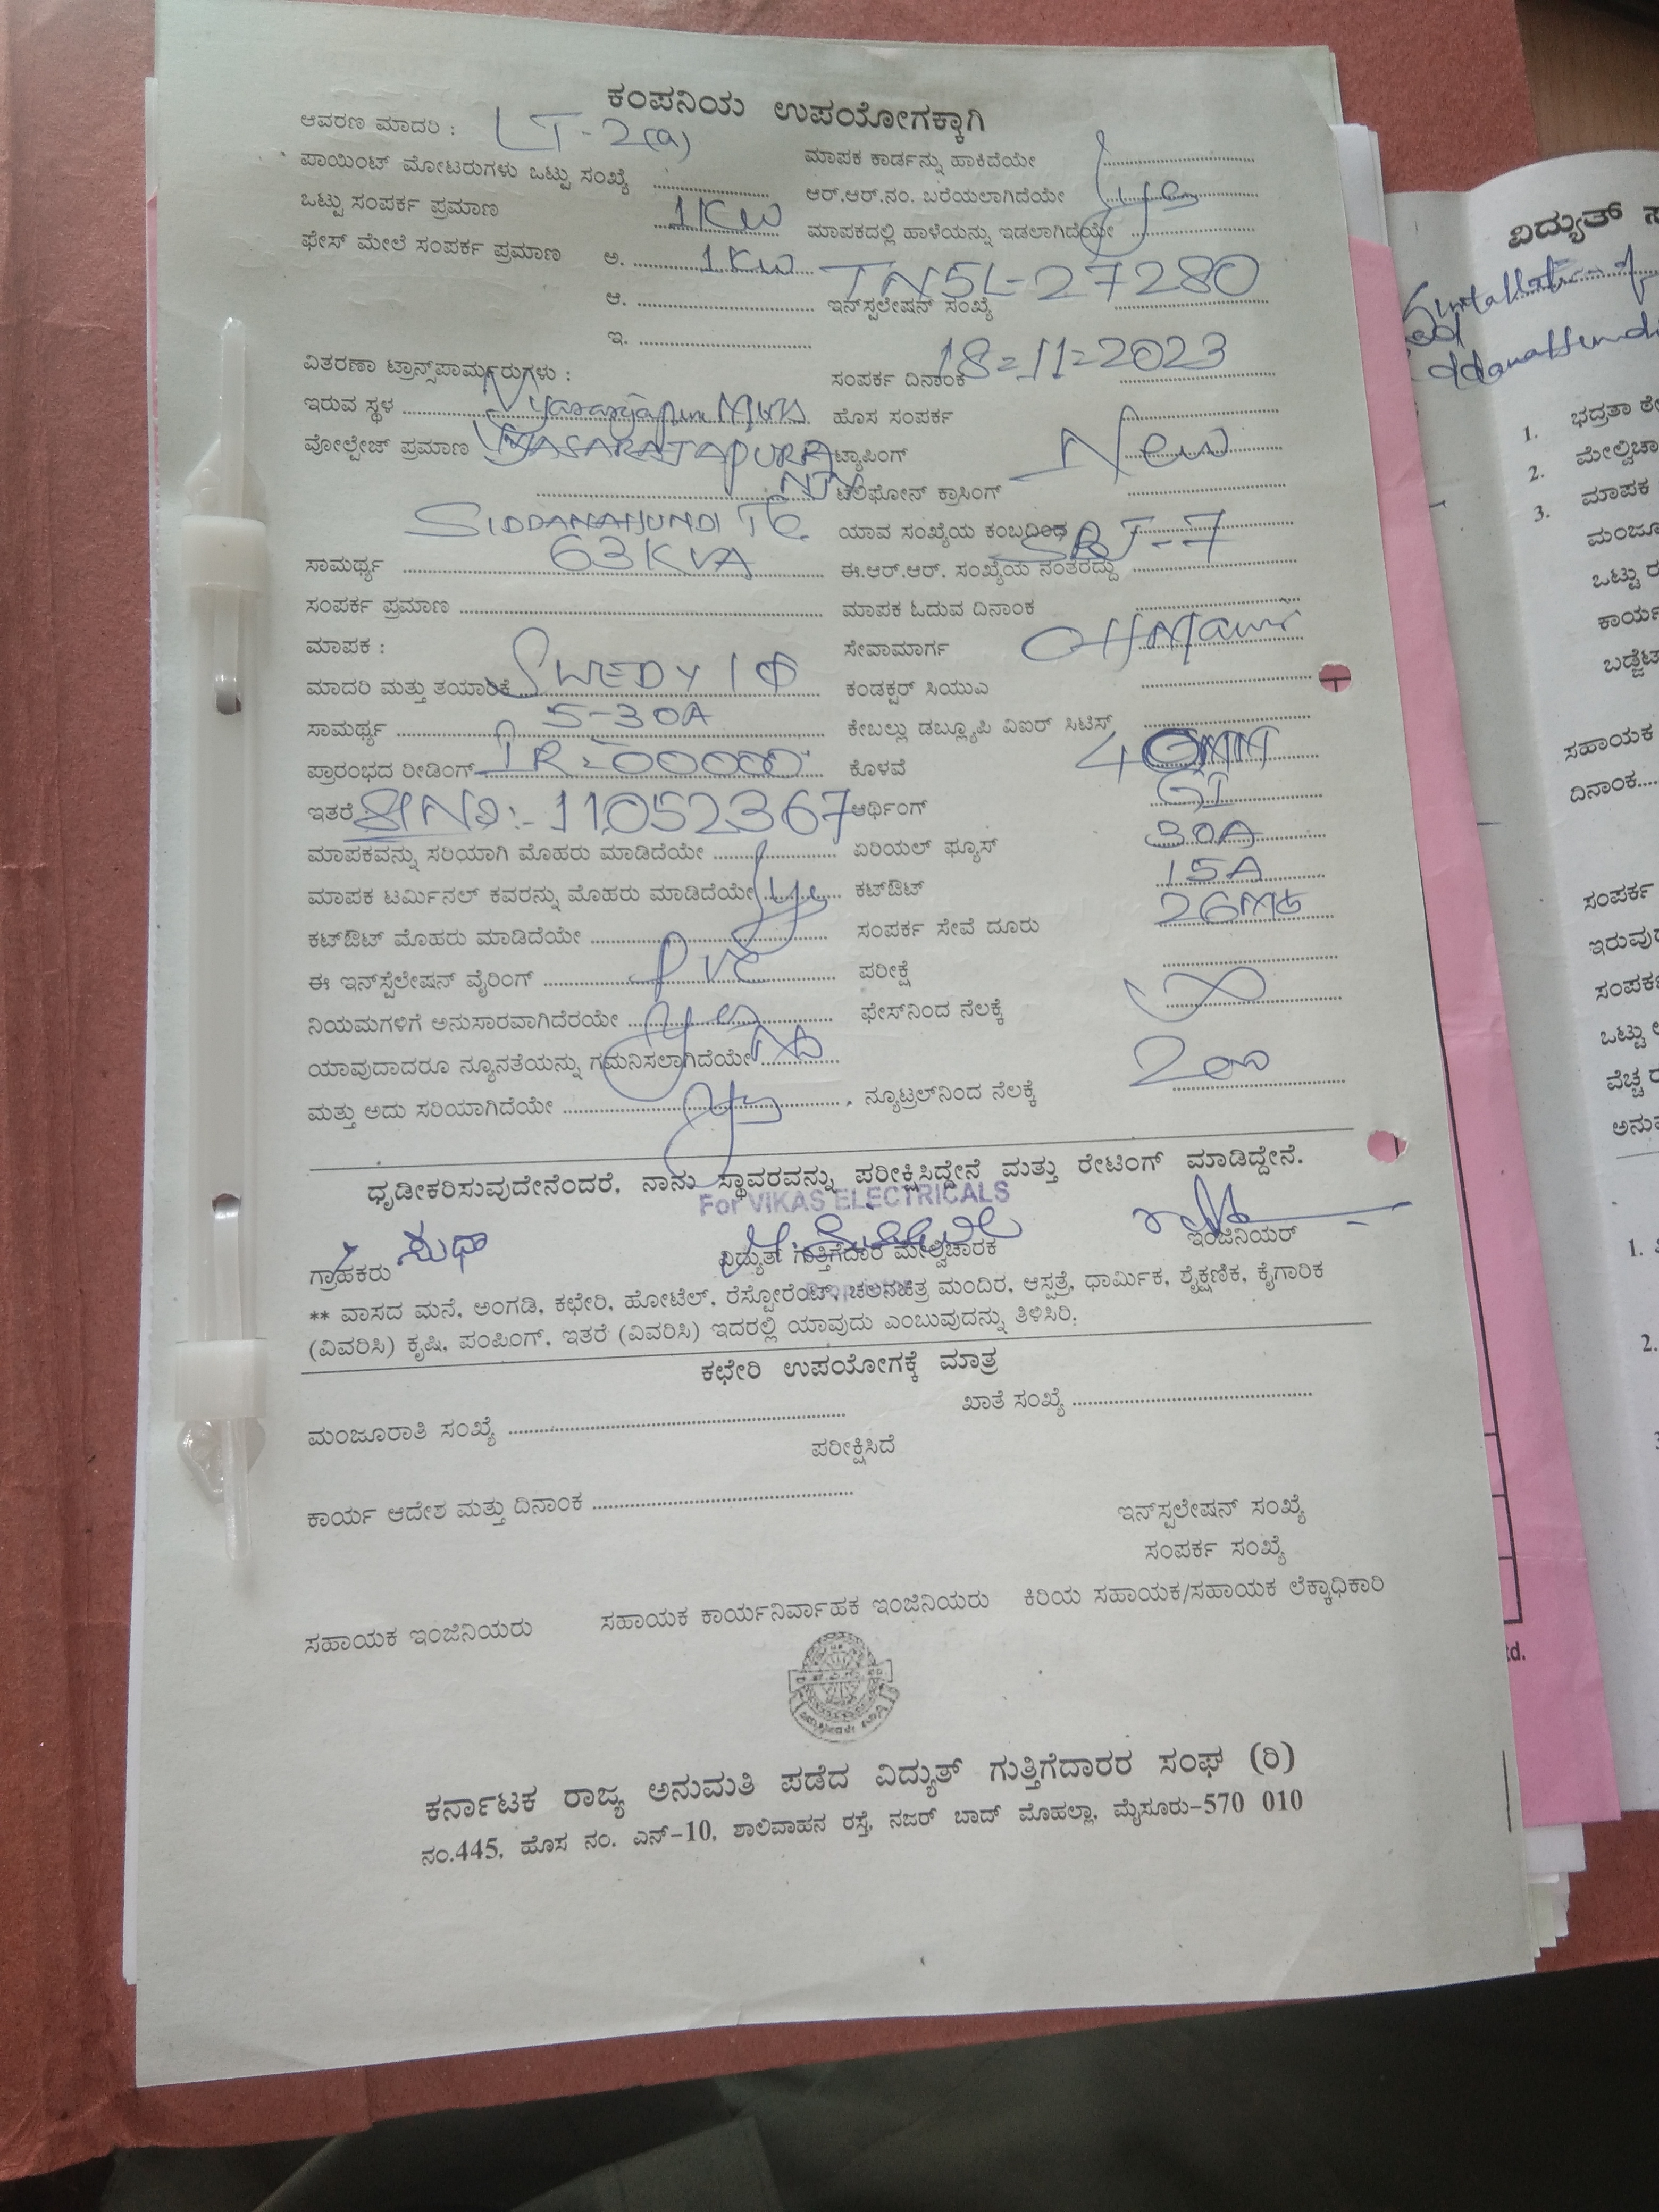 ಕಂಪನಿಯ ಉಪಯೋಗಕ್ಕಾಗಿ
ಆವರಣ ಮಾದರಿ : LT-2(a)
ಪಾಯಿಂಟ್ ಮೋಟರುಗಳು ಒಟ್ಟು ಸಂಖ್ಯೆ
ಒಟ್ಟು ಸಂಪರ್ಕ ಪ್ರಮಾಣ 1KW
ಫೇಸ್ ಮೇಲೆ ಸಂಪರ್ಕ ಪ್ರಮಾಣ ಅ. 1KW
ಆ.
ಇ.
ವಿತರಣಾ ಟ್ರಾನ್ಸ್‌ಪಾರ್ಮರುಗಳು :
ಇರುವ ಸ್ಥಳ
ವೋಲ್ಟೇಜ್ ಪ್ರಮಾಣ VYASARAJAPURA
SIDDANAHUNDI TC
ಸಾಮರ್ಥ್ಯ 63KVA
ಸಂಪರ್ಕ ಪ್ರಮಾಣ
ಮಾಪಕ :
ಮಾದರಿ ಮತ್ತು ತಯಾರಿಕೆ SWEDY 1Φ
ಸಾಮರ್ಥ್ಯ 5-30A
ಪ್ರಾರಂಭದ ರೀಡಿಂಗ್ IR=00000
ಇತರೆ Sl No:- 11052367
ಮಾಪಕವನ್ನು ಸರಿಯಾಗಿ ಮೊಹರು ಮಾಡಿದೆಯೇ
ಮಾಪಕ ಟರ್ಮಿನಲ್ ಕವರನ್ನು ಮೊಹರು ಮಾಡಿದೆಯೇ yes
ಕಟ್‌ಔಟ್ ಮೊಹರು ಮಾಡಿದೆಯೇ
ಈ ಇನ್‌ಸ್ಟೆಲೇಷನ್ ವೈರಿಂಗ್ PVC
ನಿಯಮಗಳಿಗೆ ಅನುಸಾರವಾಗಿದೆರಯೇ yes
ಯಾವುದಾದರೂ ನ್ಯೂನತೆಯನ್ನು ಗಮನಿಸಲಾಗಿದೆಯೇ No
ಮತ್ತು ಅದು ಸರಿಯಾಗಿದೆಯೇ yes
ಮಾಪಕ ಕಾರ್ಡನ್ನು ಹಾಕಿದೆಯೇ
ಆರ್.ಆರ್.ನಂ. ಬರೆಯಲಾಗಿದೆಯೇ yes
ಮಾಪಕದಲ್ಲಿ ಹಾಳೆಯನ್ನು ಇಡಲಾಗಿದೆಯೇ
TN5L-27280
ಇನ್‌ಸ್ಟಲೇಷನ್ ಸಂಖ್ಯೆ
ಸಂಪರ್ಕ ದಿನಾಂಕ 18=11=2023
ಹೊಸ ಸಂಪರ್ಕ
ಟ್ಯಾಪಿಂಗ್ New
ಟೆಲಿಫೋನ್ ಕ್ರಾಸಿಂಗ್
ಯಾವ ಸಂಖ್ಯೆಯ ಕಂಬದಿಂದ
ಈ.ಆರ್.ಆರ್. ಸಂಖ್ಯೆಯ ನಂತರದ್ದು
ಮಾಪಕ ಓದುವ ದಿನಾಂಕ
ಸೇವಾಮಾರ್ಗ
ಕಂಡಕ್ಟರ್ ಸಿಯುಎ
ಕೇಬಲ್ಲು ಡಬ್ಲ್ಯೂಪಿ ವಿಐಆರ್ ಸಿಟಿಸ್
ಕೊಳವೆ
ಆರ್ಥಿಂಗ್ GI
ಏರಿಯಲ್ ಫ್ಯೂಸ್ 30A
ಕಟ್‌ಔಟ್ 15A
ಸಂಪರ್ಕ ಸೇವೆ ದೂರು
ಪರೀಕ್ಷೆ
ಫೇಸ್‌ನಿಂದ ನೆಲಕ್ಕೆ ∞
ನ್ಯೂಟ್ರಲ್‌ನಿಂದ ನೆಲಕ್ಕೆ
ಧೃಡೀಕರಿಸುವುದೇನೆಂದರೆ, ನಾನು ಸ್ಥಾವರವನ್ನು ಪರೀಕ್ಷಿಸಿದ್ದೇನೆ ಮತ್ತು ರೇಟಿಂಗ್ ಮಾಡಿದ್ದೇನೆ.
For VIKAS ELECTRICALS
ಸುಧಾ
ಗ್ರಾಹಕರು ವಿದ್ಯುತ್ ಗುತ್ತಿಗೆದಾರ ಮೇಲ್ವಿಚಾರಕ ಇಂಜಿನಿಯರ್
** ವಾಸದ ಮನೆ, ಅಂಗಡಿ, ಕಛೇರಿ, ಹೋಟೆಲ್, ರೆಸ್ಟೋರೆಂಟ್, ಚಲನಚಿತ್ರ ಮಂದಿರ, ಆಸ್ಪತ್ರೆ, ಧಾರ್ಮಿಕ, ಶೈಕ್ಷಣಿಕ, ಕೈಗಾರಿಕ
(ವಿವರಿಸಿ) ಕೃಷಿ, ಪಂಪಿಂಗ್, ಇತರೆ (ವಿವರಿಸಿ) ಇದರಲ್ಲಿ ಯಾವುದು ಎಂಬುವುದನ್ನು ತಿಳಿಸಿರಿ.
ಕಛೇರಿ ಉಪಯೋಗಕ್ಕೆ ಮಾತ್ರ
ಮಂಜೂರಾತಿ ಸಂಖ್ಯೆ ಖಾತೆ ಸಂಖ್ಯೆ
ಪರೀಕ್ಷಿಸಿದೆ
ಕಾರ್ಯ ಆದೇಶ ಮತ್ತು ದಿನಾಂಕ
ಇನ್‌ಸ್ಟಲೇಷನ್ ಸಂಖ್ಯೆ
ಸಂಪರ್ಕ ಸಂಖ್ಯೆ
ಸಹಾಯಕ ಇಂಜಿನಿಯರು ಸಹಾಯಕ ಕಾರ್ಯನಿರ್ವಾಹಕ ಇಂಜಿನಿಯರು ಕಿರಿಯ ಸಹಾಯಕ/ಸಹಾಯಕ ಲೆಕ್ಕಾಧಿಕಾರಿ
ಕರ್ನಾಟಕ ರಾಜ್ಯ ಅನುಮತಿ ಪಡೆದ ವಿದ್ಯುತ್ ಗುತ್ತಿಗೆದಾರರ ಸಂಘ (ರಿ)
ನಂ.445, ಹೊಸ ನಂ. ಎನ್-10, ಶಾಲಿವಾಹನ ರಸ್ತೆ, ನಜರ್ ಬಾದ್ ಮೊಹಲ್ಲಾ, ಮೈಸೂರು-570 010
ವಿದ್ಯುತ್
1. ಭದ್ರತಾ
2.
3. ಮಾಪಕ
ಸಹಾಯಕ
ದಿನಾಂಕ
ಸಂಪರ್ಕ
1.
2.
td.